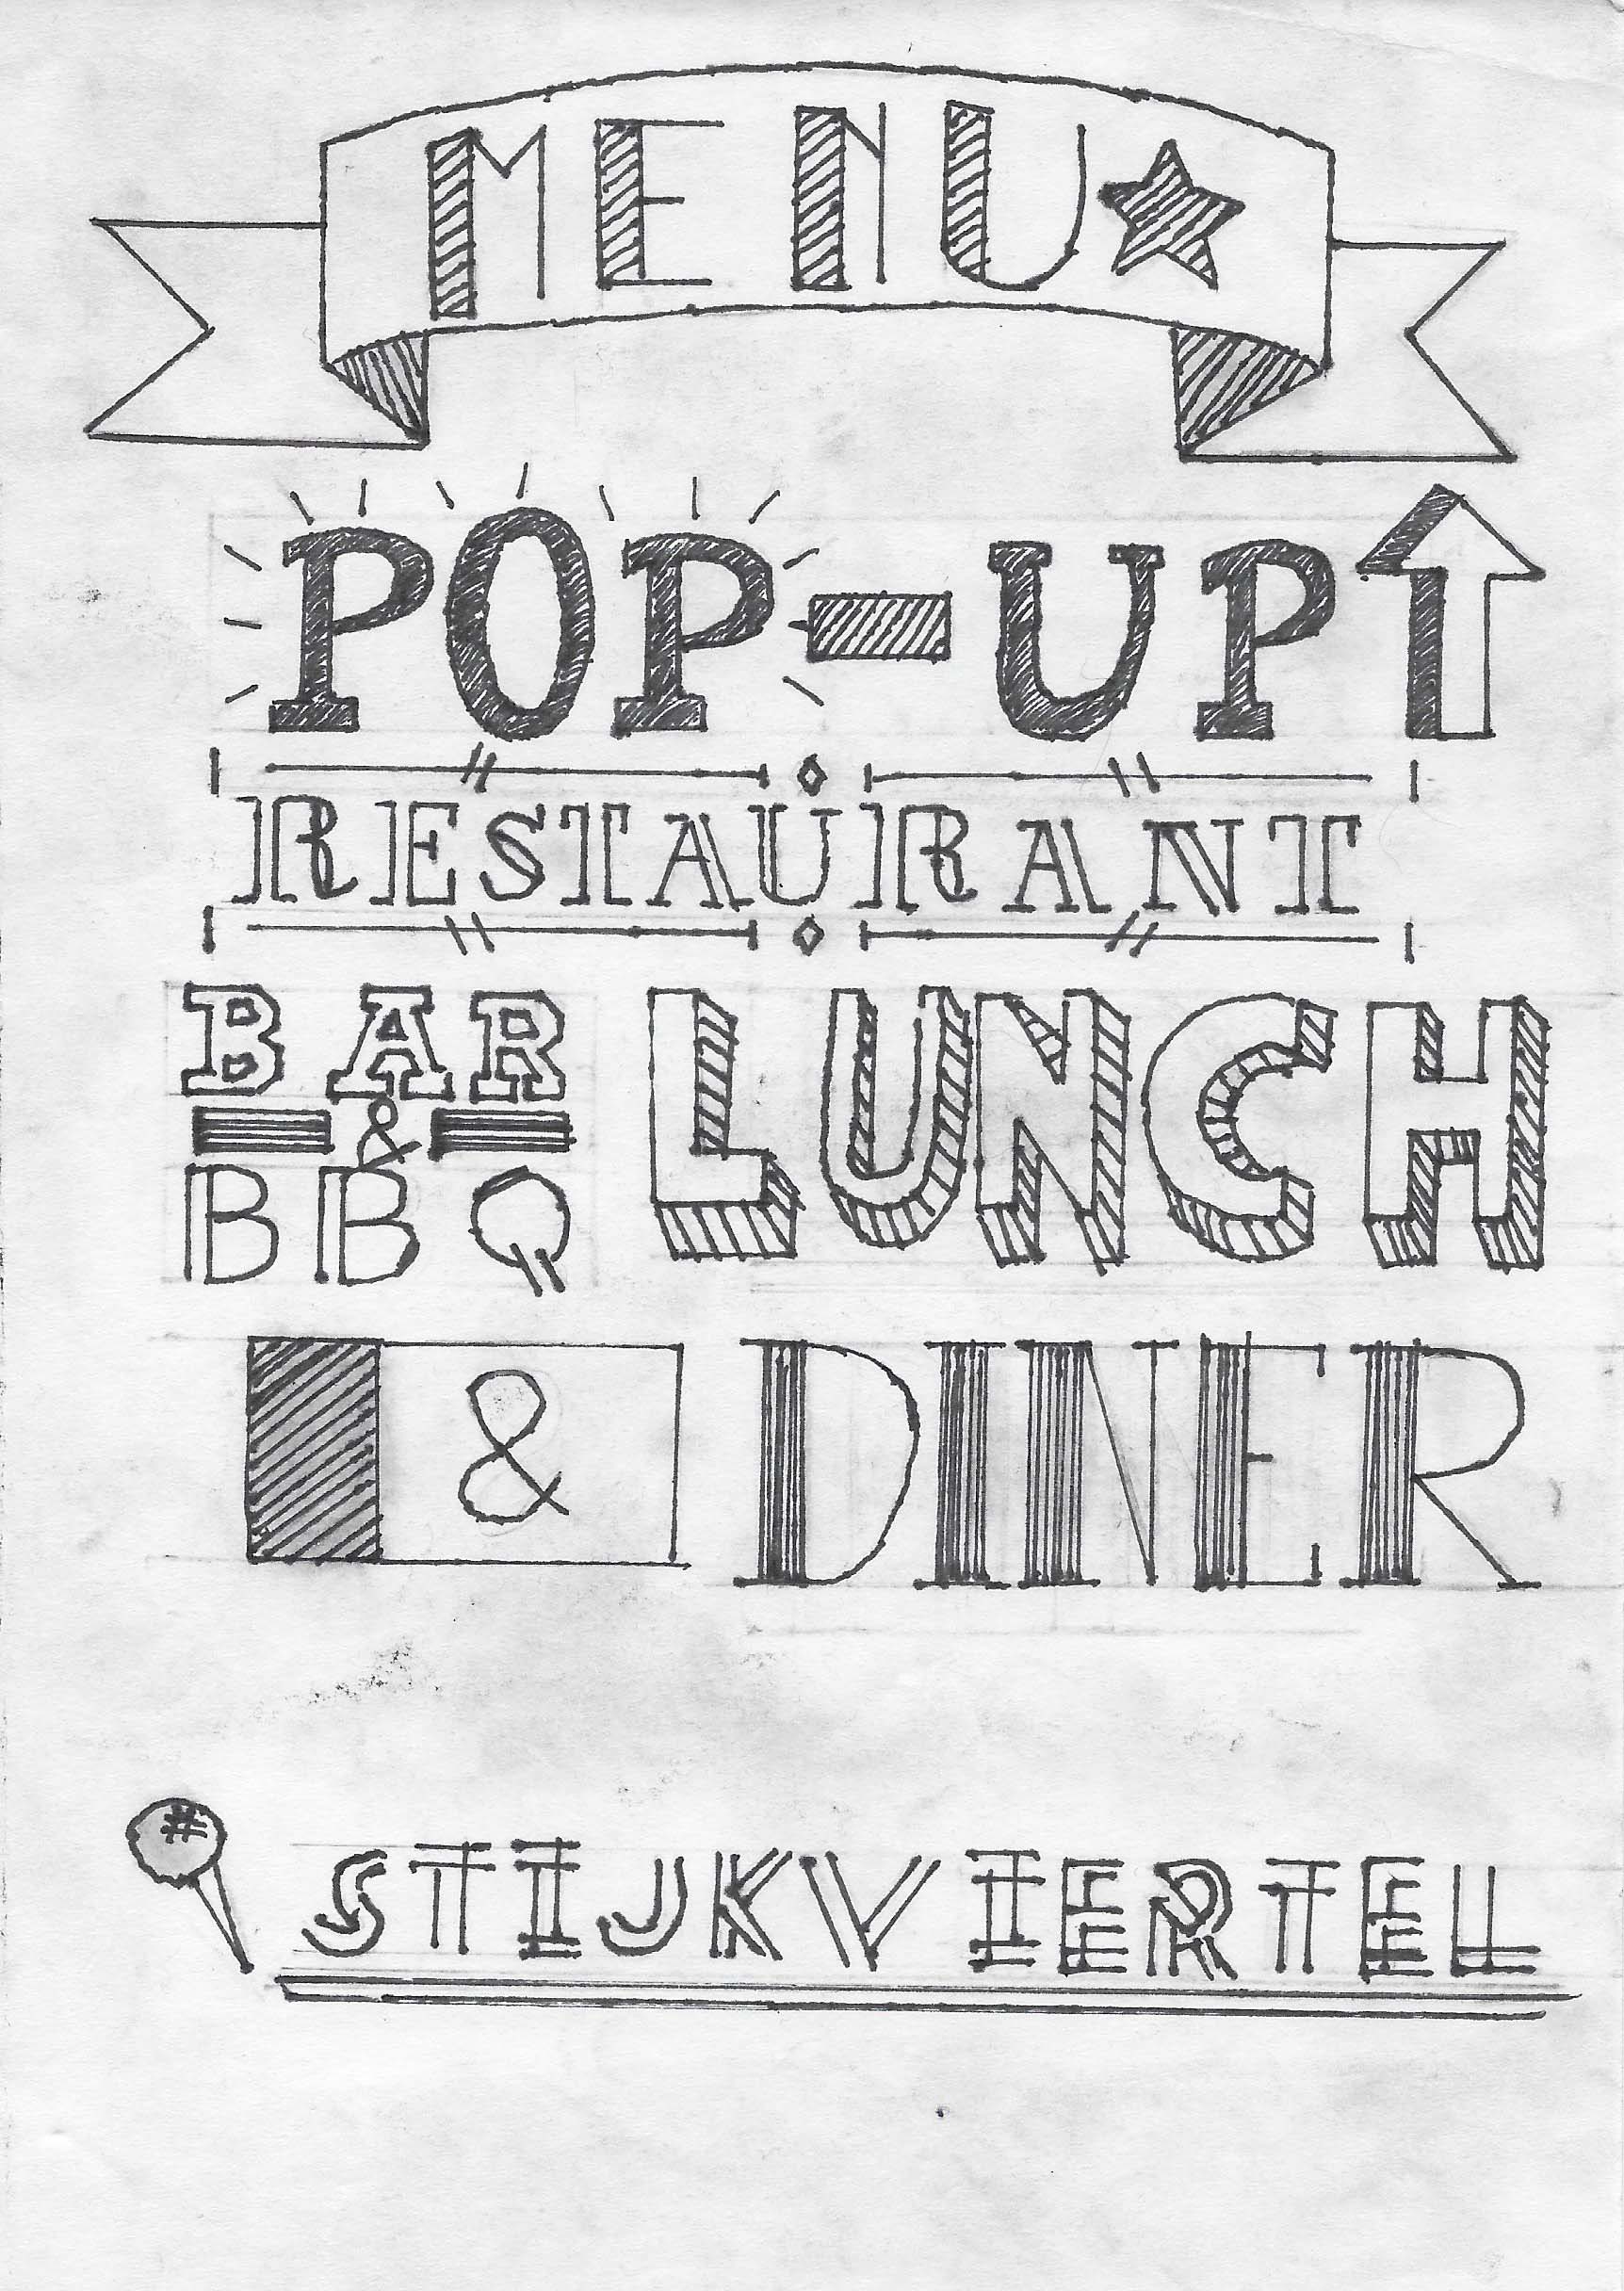 MENU
POP-UP
RESTAURANT
BAR
&
BBQ
LUNCH
& DINER
#
STIJKVIERTEL